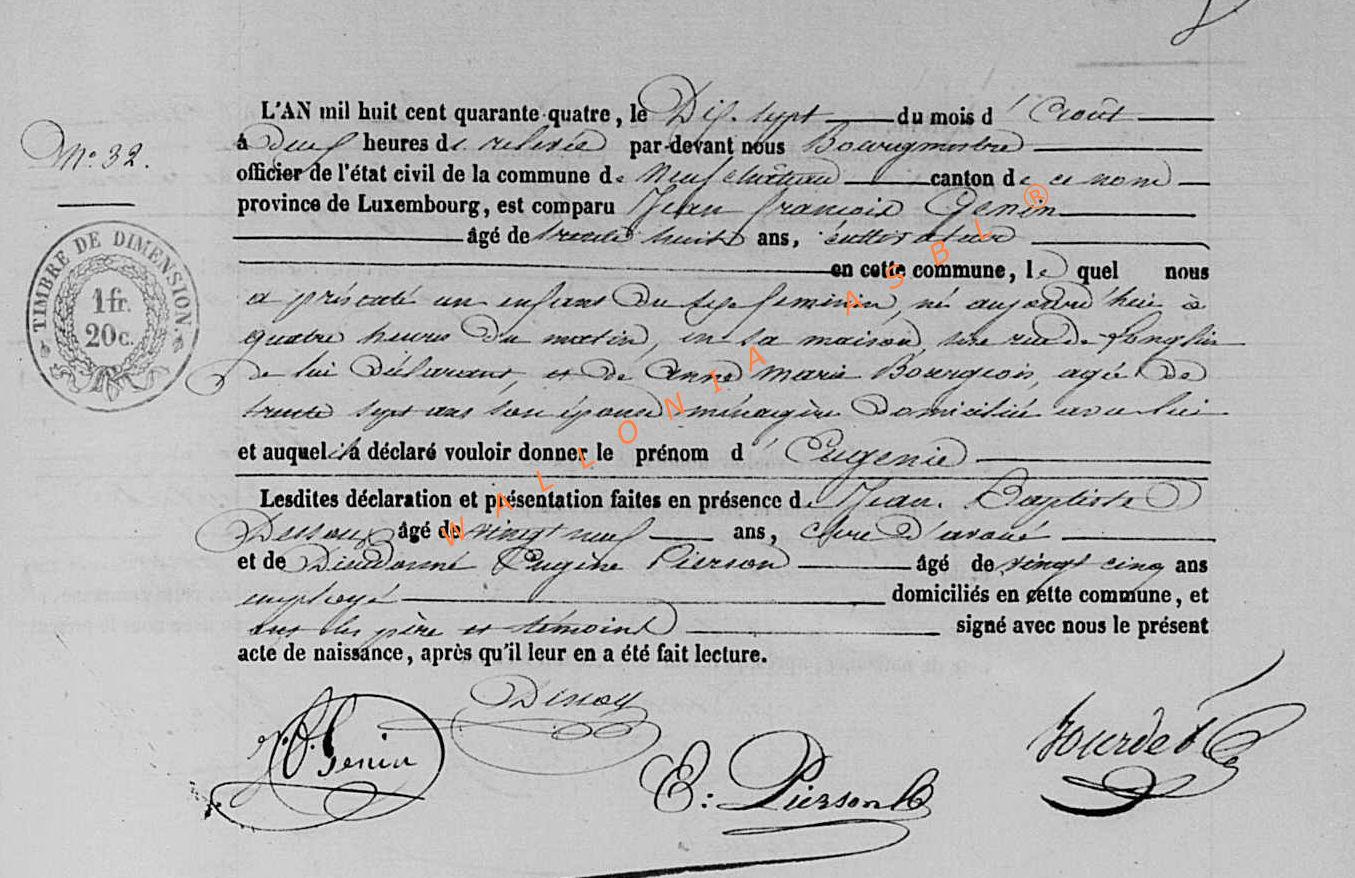 L'AN mil huit cent quarante-quatre, le Dix sept du mois d'Août
N° 32.
à heures de relevée par-devant nous Bourgmestre
officier de l'état civil de la commune de Neufchâteau canton de ce nom
province de Luxembourg, est comparu Jean françois Genin
âgé de trente huit ans, cultivateur
en cette commune, lequel nous
a présenté un enfant du sexe feminin, né aujourd'hui à
quatre heures du matin, en sa maison, sise rue de Longlier
de lui déclarant, et de Anne Marie Bourgeois, agée de
trente sept ans son épouse ménagère domiciliée avec lui
et auquel il a déclaré vouloir donner le prénom d'Eugenie
Lesdites déclaration et présentation faites en présence de Jean Baptiste
âgé de vingt neuf ans, clerc d'avoué
et de Dieudonné Eugène Pierson âgé de vingt cinq ans
employé domiciliés en cette commune, et
ont les père et témoins signé avec nous le présent
acte de naissance, après qu'il leur en a été fait lecture.
TIMBRE DE DIMENSION.
1 fr.
20 c.
J. f. Genin
E: Pierson
Jourdet
WALLONIA ASBL ®